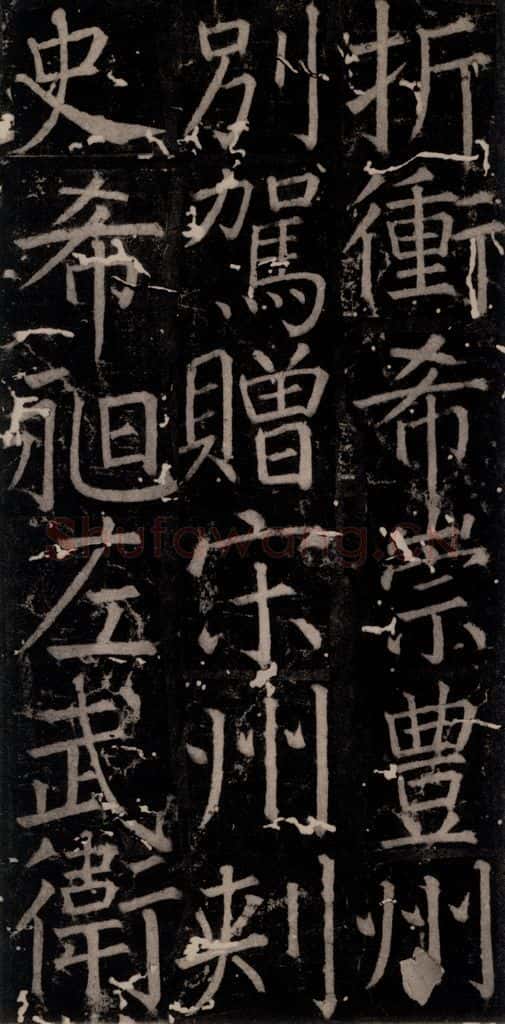 折衝希崇豊州
別駕贈宋州刾
史希𣈶左武衛
Shufawang.cn